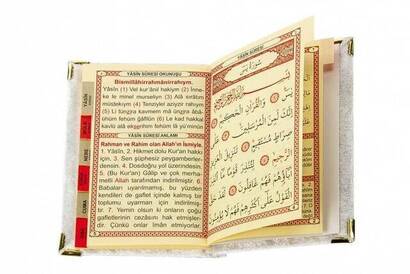 YÂSÎN SÛRESİ OKUNUŞU
Bismillâhirrahmânirrahîym.
Yâsîn (1) Vel kur'ânil hakiym (2) İnne-
ke le minel murseliyn (3) Alâ sırâtım
müstekıym (4) Tenziylel aziyzir rahıym
(5) Li tünzira kavmem mâ ünzira âbâü-
hüm fehüm ğâfilûn (6) Le kad hakkal
kavlü alâ ekserihim fehüm lâ yü'minûn
YÂSÎN SÛRESİ ANLAMI
Rahman ve Rahim olan Allah'ın İsmiyle.
1. Yâsîn, 2. Hikmet dolu Kur'an hakkı
için, 3. Sen şüphesiz peygamberler-
densin. 4. Dosdoğru yol üzerindesin,
5. (Bu Kur'an) Gâlip ve çok merha-
metli Allah tarafından indirilmiştir. 6.
Babaları uyarılmamış, bu yüzden
kendileri de gaflet içinde kalmış bir
toplumu uyarman için indirilmiştir.
7. Yemin olsun ki onların çoğu
gafletlerinin cezâsını hak etmişler-
dir. Çünkü onlar îmân etmiyorlar.
YÂSÎN
YÂSÎN SÛRESİ
سُورَةُ يٰسٓ
يٰسٓ وَالْقُرْاٰنِ الْحَكِيمِ
اِنَّكَ لَمِنَ الْمُرْسَلِينَ
صِرَاطٍ مُسْتَقِيمٍ تَنْزِيلَ الْعَزِيزِ
الرَّحِيمِ
اٰبَاؤُهُمْ فَهُمْ غَافِلُونَ
الْقَوْلُ عَلٰٓى اَكْثَرِهِمْ فَهُمْ لَا يُؤْمِنُونَ